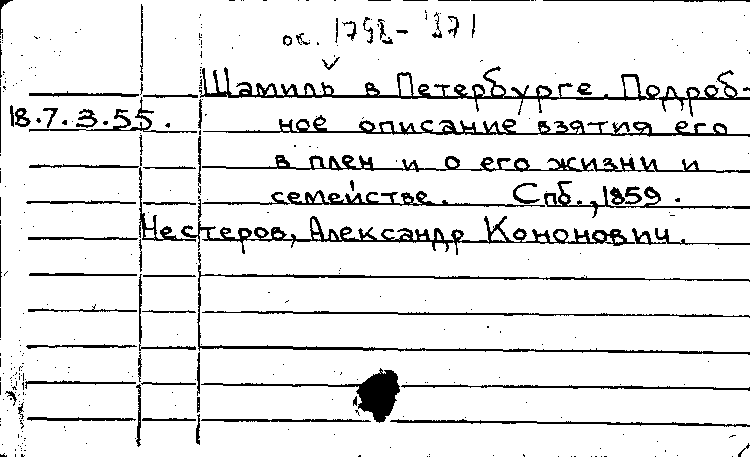 ок. 1798-1871
Шамиль в Петербурге. Подроб-
18.7.3.55. ное описание взятия его
в плен и о его жизни и
семействе. Спб., 1859.
Нестеров, Александр Кононович.